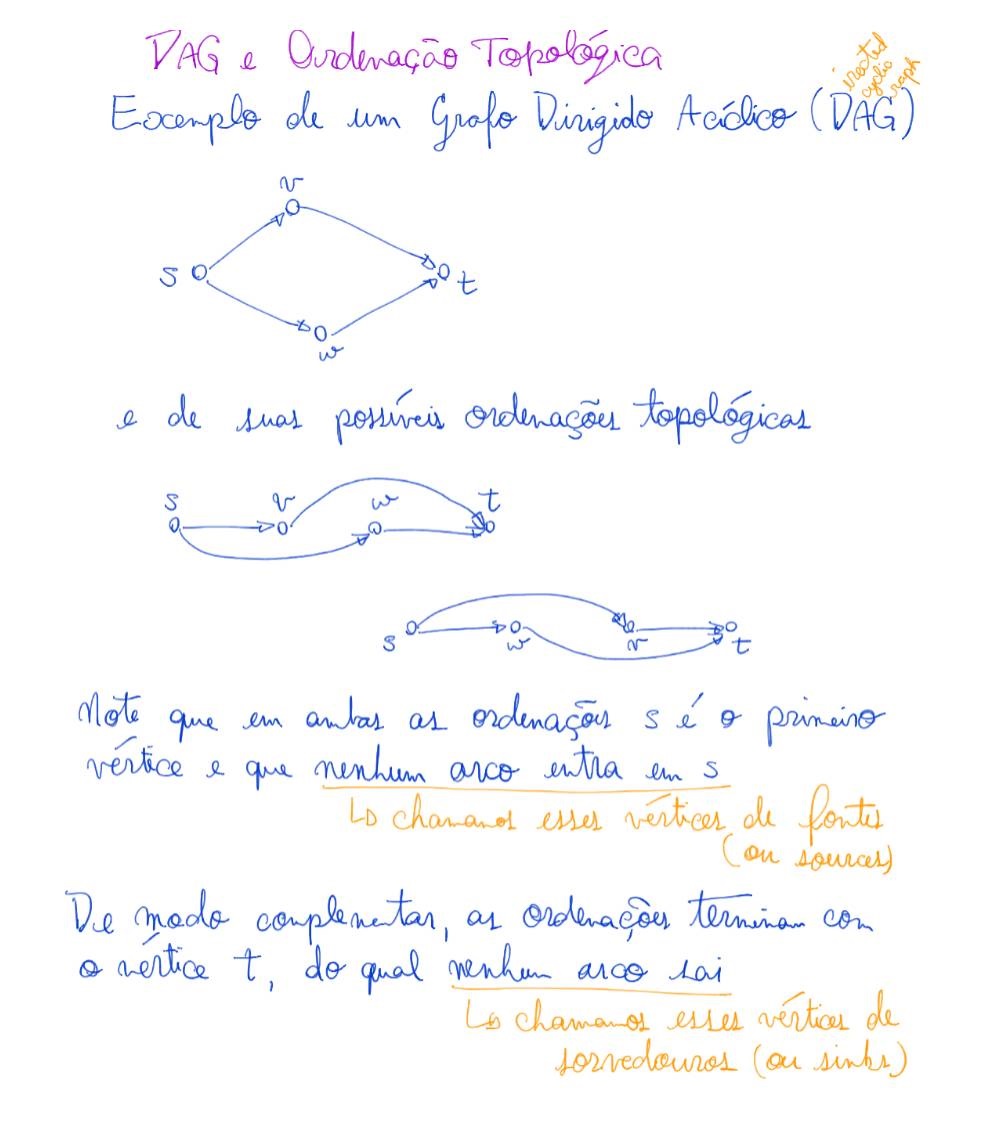 DAG e Ordenação Topológica
irected
cyclic
raph
Exemplo de um Grafo Dirigido Acíclico (DAG)
v
s
t
w
e de suas possíveis ordenações topológicas
s v w t
s w v t
Note que em ambas as ordenações s é o primeiro
vértice e que nenhum arco entra em s
chamamos esses vértices de fontes
(ou sources)
De modo complementar, as ordenações terminam com
o vértice t, do qual nenhum arco sai
chamamos esses vértices de
sorvedouros (ou sinks)